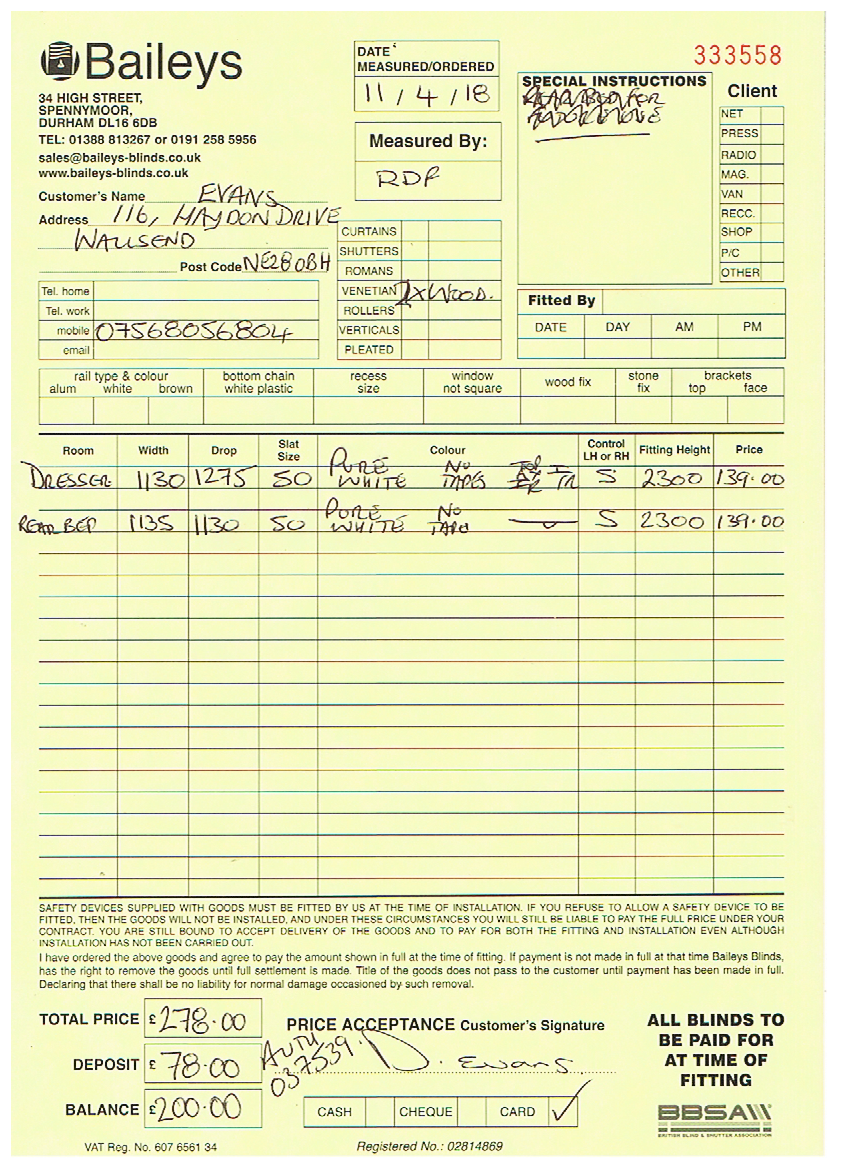 Baileys
34 HIGH STREET,
SPENNYMOOR,
DURHAM DL16 6DB
TEL: 01388 813267 or 0191 258 5956
sales@baileys-blinds.co.uk
www.baileys-blinds.co.uk
DATE
MEASURED/ORDERED
11/4/18
Measured By:
RDF
333558
SPECIAL INSTRUCTIONS
Client
NET
PRESS
RADIO
MAG.
VAN
RECC.
SHOP
P/C
OTHER
Customer's Name EVANS
Address 116, HAYDON DRIVE
WALLSEND
Post Code NE28 0BH
Tel. home
Tel. work
mobile 07568056804
email
CURTAINS
SHUTTERS
ROMANS
VENETIAN 2xWOOD.
ROLLERS
VERTICALS
PLEATED
Fitted By
DATE DAY AM PM
rail type & colour
alum white brown
bottom chain
white plastic
recess
size
window
not square
wood fix
stone
fix
brackets
top face
Room Width Drop Slat Size Colour Control LH or RH Fitting Height Price
DRESSER 1130 1275 50 PURE WHITE NO TAPES S 2300 139.00
REAR BED 1135 1130 50 PURE WHITE NO TAPE S 2300 139.00
SAFETY DEVICES SUPPLIED WITH GOODS MUST BE FITTED BY US AT THE TIME OF INSTALLATION. IF YOU REFUSE TO ALLOW A SAFETY DEVICE TO BE
FITTED, THEN THE GOODS WILL NOT BE INSTALLED, AND UNDER THESE CIRCUMSTANCES YOU WILL STILL BE LIABLE TO PAY THE FULL PRICE UNDER YOUR
CONTRACT. YOU ARE STILL BOUND TO ACCEPT DELIVERY OF THE GOODS AND TO PAY FOR BOTH THE FITTING AND INSTALLATION EVEN ALTHOUGH
INSTALLATION HAS NOT BEEN CARRIED OUT.
I have ordered the above goods and agree to pay the amount shown in full at the time of fitting. If payment is not made in full at that time Baileys Blinds,
has the right to remove the goods until full settlement is made. Title of the goods does not pass to the customer until payment has been made in full.
Declaring that there shall be no liability for normal damage occasioned by such removal.
TOTAL PRICE £278.00
DEPOSIT £78.00
BALANCE £200.00
PRICE ACCEPTANCE Customer's Signature
AUTH
037539.
D. Evans
CASH CHEQUE CARD ✓
ALL BLINDS TO
BE PAID FOR
AT TIME OF
FITTING
BBSA
BRITISH BLIND & SHUTTER ASSOCIATION
VAT Reg. No. 607 6561 34
Registered No.: 02814869